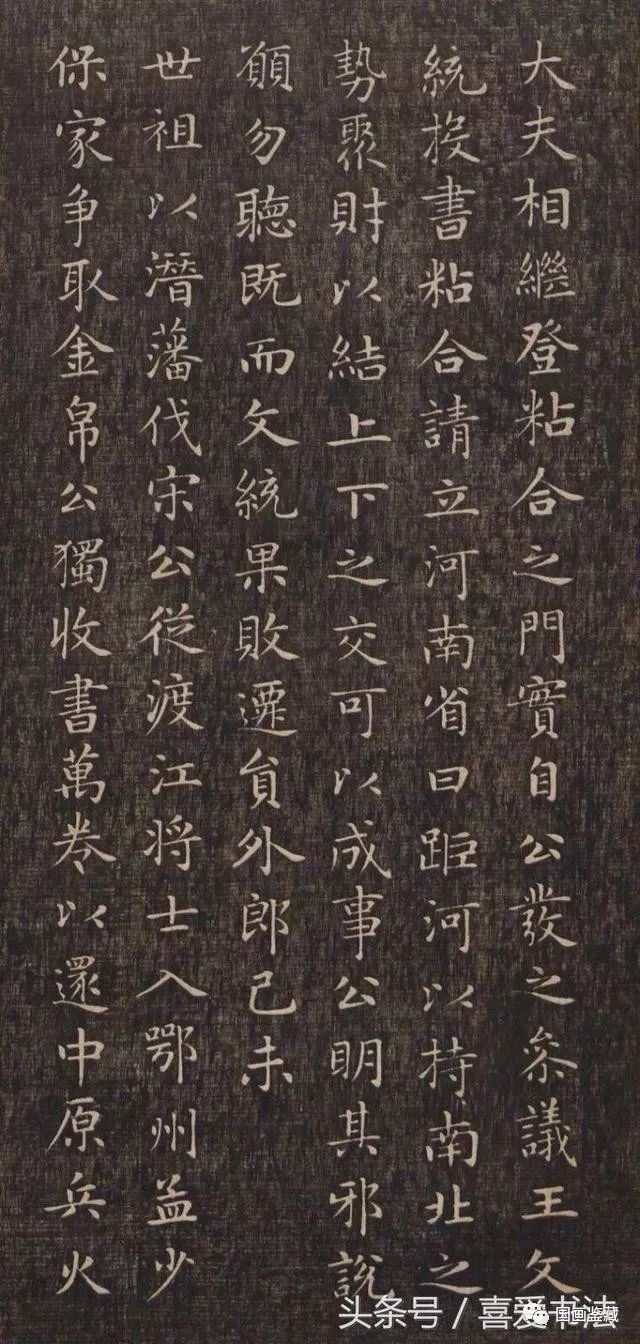 大夫相繼登粘合之門實自公發之叅議王文
統投書粘合請立河南省曰距河以持南北之
勢聚財以結上下之交可以成事公明其邪說
願勿聽既而文統果敗遷貟外郎己未
世祖以潛藩伐宋公從渡江将士入鄂州益少
保家争取金帛公獨收書萬卷以還中原兵火
头条号／喜爱书法
国画鉴藏